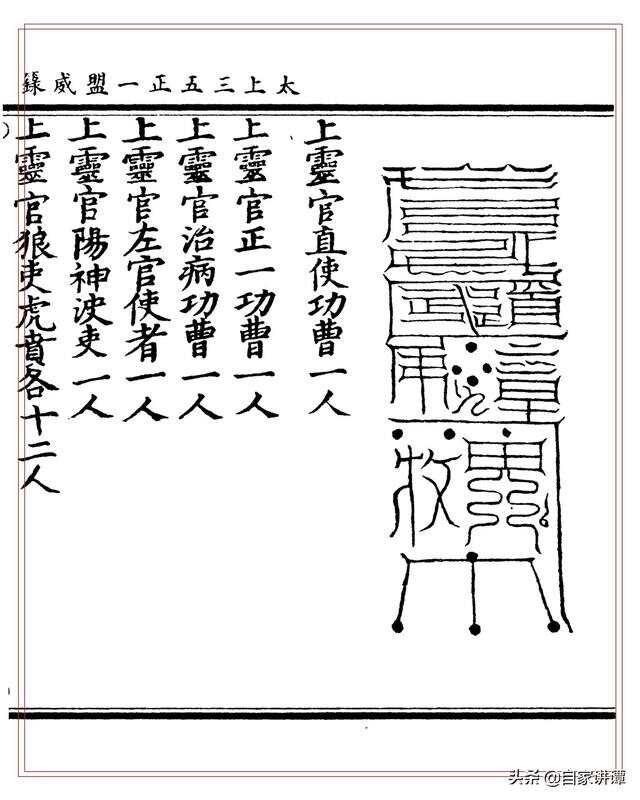 太上三五正一盟威籙
上靈官直使功曹一人
上靈官正一功曹一人
上靈官治病功曹一人
上靈官左官使者一人
上靈官陽神決吏一人
上靈官狼吏虎賁各十二人
头条 @自家讲谭